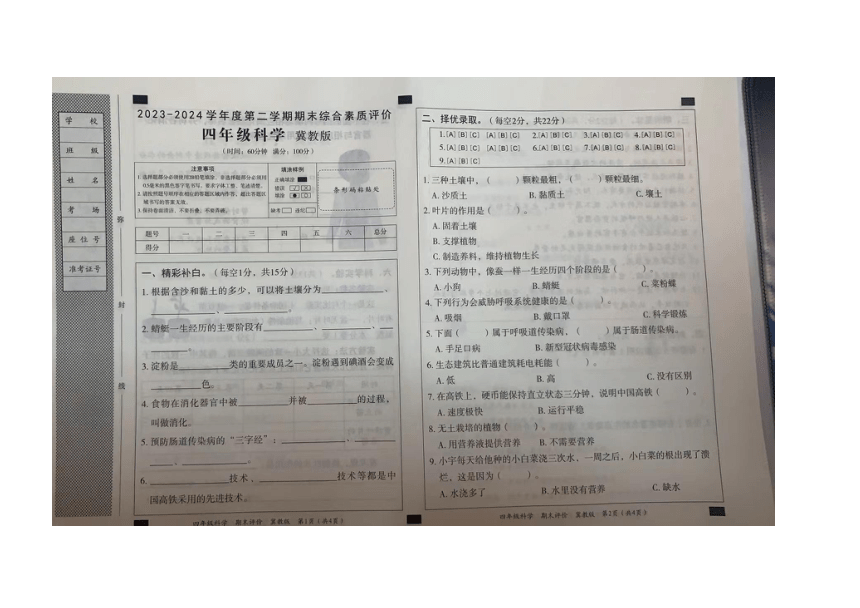 学 校
班 级
姓 名
考 场
座 位 号
准考证号
弥
封
线
2023-2024学年度第二学期期末综合素质评价
四年级科学 冀教版
(时间:60分钟 满分:100分)
注意事项
填涂样例
正确填涂
错误
填涂
条形码粘贴处
缺考
违纪
题号 一 二 三 四 五 六 总分
得分
一、精彩补白。(每空1分,共15分)
1. 根据含沙和黏土的多少,可以将土壤分为________、
________、________。
2. 蜻蜓一生经历的主要阶段有________、________、____
____。
3. 淀粉是________类的重要成员之一。淀粉遇到碘酒会变成
________色。
4. 食物在消化器官中被________并被________的过程,
叫做消化。
5. 预防肠道传染病的“三字经”:________、________
____、________。
6. ________技术、________技术等都是中
国高铁采用的先进技术。
四年级科学 期末评价 冀教版 第1页(共4页)
二、择优录取。(每空2分,共22分)
1.[A][B][C] [A][B][C] 2.[A][B][C] 3.[A][B][C] 4.[A][B][C]
5.[A][B][C] [A][B][C] 6.[A][B][C] 7.[A][B][C] 8.[A][B][C]
9.[A][B][C]
1. 三种土壤中,( )颗粒最粗,( )颗粒最细。
A. 沙质土 B. 黏质土 C. 壤土
2. 叶片的作用是( )。
A. 固着土壤
B. 支撑植物
C. 制造养料,维持植物生长
3. 下列动物中,像蚕一样一生经历四个阶段的是( )。
A. 小狗 B. 蜻蜓 C. 菜粉蝶
4. 下列行为会威胁呼吸系统健康的是( )。
A. 吸烟 B. 戴口罩 C. 科学锻炼
5. 下面( )属于呼吸道传染病,( )属于肠道传染病。
A. 手足口病 B. 新型冠状病毒感染
6. 生态建筑比普通建筑耗电耗能( )。
A. 低 B. 高 C. 没有区别
7. 在高铁上,硬币能保持直立状态三分钟,说明中国高铁( )。
A. 速度极快 B. 运行平稳
8. 无土栽培的植物( )。
A. 用营养液提供营养 B. 不需要营养
9. 小宇每天给他种的小白菜浇三次水,一周之后,小白菜的根出现了溃
烂,这是因为( )。
A. 水浇多了 B. 水里没有营养 C. 缺水
四年级科学 期末评价 冀教版 第2页(共4页)